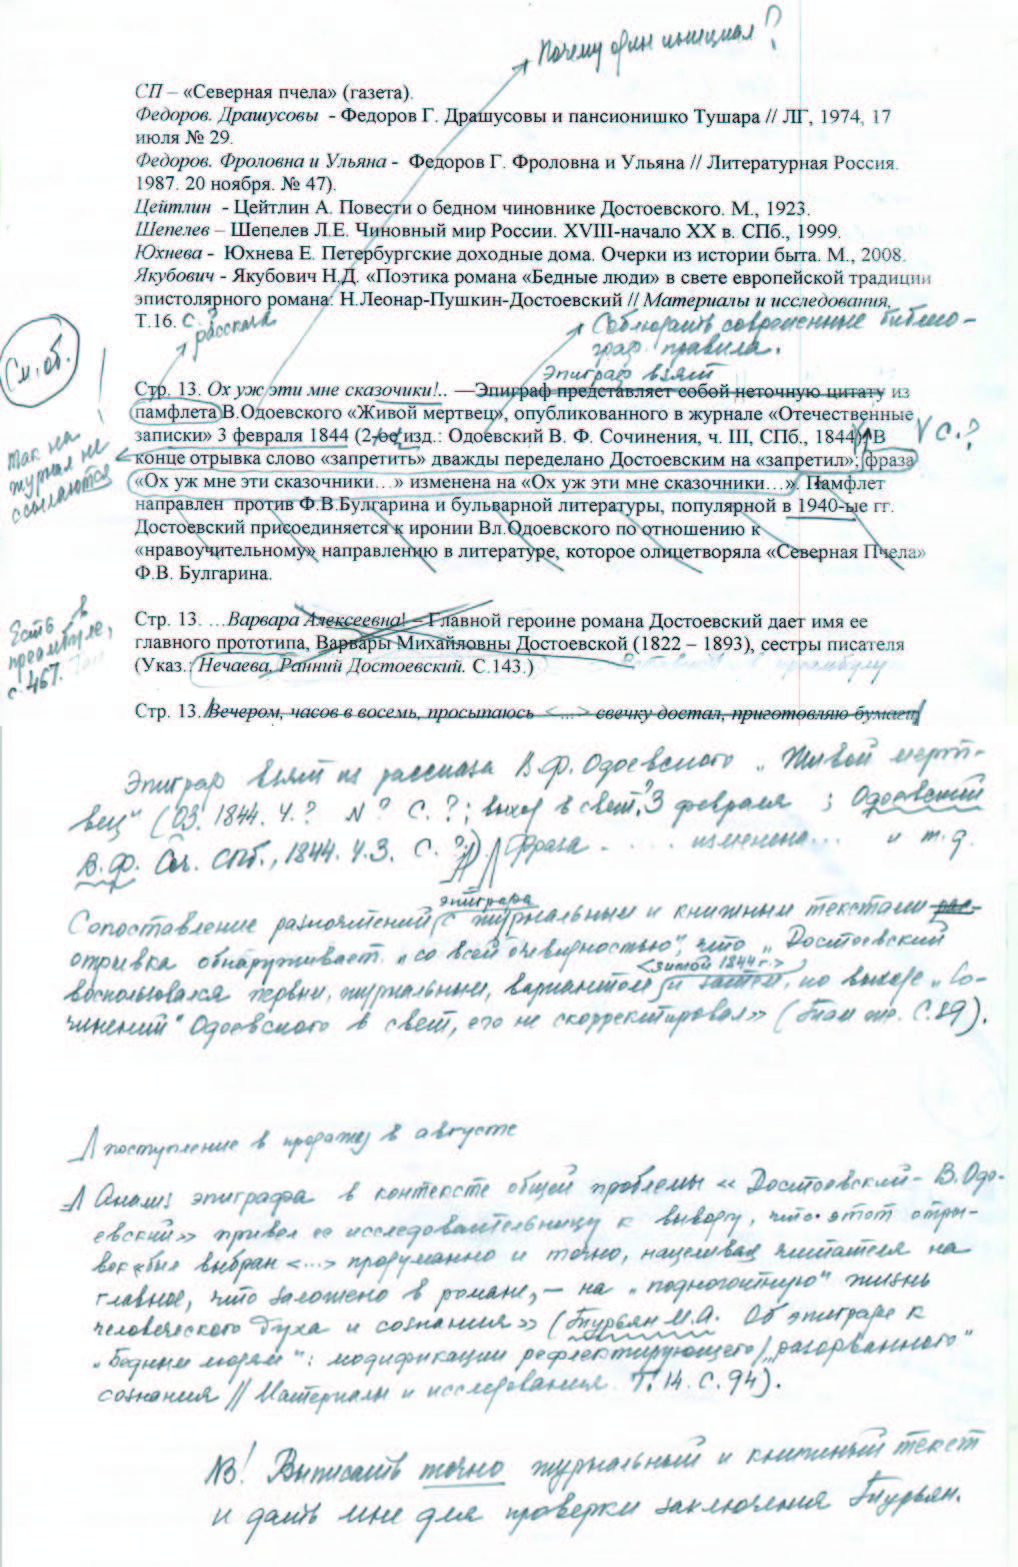 Почему один инициал?
СП – «Северная пчела» (газета).
Федоров. Драшусовы - Федоров Г. Драшусовы и пансионишко Тушара // ЛГ, 1974, 17
июля № 29.
Федоров. Фроловна и Ульяна - Федоров Г. Фроловна и Ульяна // Литературная Россия.
1987. 20 ноября. № 47).
Цейтлин - Цейтлин А. Повести о бедном чиновнике Достоевского. М., 1923.
Шепелев – Шепелев Л.Е. Чиновный мир России. XVIII-начало XX в. СПб., 1999.
Юхнева - Юхнева Е. Петербургские доходные дома. Очерки из истории быта. М., 2008.
Якубович - Якубович Н.Д. «Поэтика романа «Бедные люди» в свете европейской традиции
эпистолярного романа: Н.Леонар-Пушкин-Достоевский // Материалы и исследования.
Т.16. С.?
рассказа
Соблюдать современные библио-
граф. правила.
См. об.
Эпиграф взят
Стр. 13. Ох уж эти мне сказочики!.. —Эпиграф представляет собой неточную цитату из
памфлета В.Одоевского «Живой мертвец», опубликованного в журнале «Отечественные
записки» 3 февраля 1844 (2-ое изд.: Одоевский В. Ф. Сочинения, ч. III, СПб., 1844). В
с.?
конце отрывка слово «запретить» дважды переделано Достоевским на «запретил»; фраза
«Ох уж мне эти сказочники…» изменена на «Ох уж эти мне сказочники…». Памфлет
направлен против Ф.В.Булгарина и бульварной литературы, популярной в 1940-ые гг.
Достоевский присоединяется к иронии Вл.Одоевского по отношению к
«нравоучительному» направлению в литературе, которое олицетворяла «Северная Пчела»
Ф.В. Булгарина.
Так на
журнал не
ссылаются
Стр. 13. …Варвара Алексеевна! – Главной героине романа Достоевский дает имя ее
главного прототипа, Варвары Михайловны Достоевской (1822 – 1893), сестры писателя
(Указ.: Нечаева, Ранний Достоевский. С.143.)
Есть в
преамбуле,
с. 467.
Стр. 13. Вечером, часов в восемь, просыпаюсь <...> свечку достал, приготовляю бумаги,
Эпиграф взят из рассказа В.Ф. Одоевского „Живой мерт-
вец“ (ОЗ. 1844. Ч.? № ? С.?; выход в свет: 3 февраля; Одоевский
В.Ф. Соч. СПб., 1844. Ч.3. С.?). Фраза .... изменена... и т.д.
эпиграфа
Сопоставление разночтений с журнальным и книжным текстами
отрывка обнаруживает „со всей очевидностью“, что „Достоевский
<зимой 1844 г.>
воспользовался первым, журнальным, вариантом и затем, по выходе „Со-
чинений“ Одоевского в свет, его не скорректировал» (Там же. С.89).
поступление в продажу в августе
Анализ эпиграфа в контексте общей проблемы «Достоевский - В.Одо-
евский» привел ее исследовательницу к выводу, что этот отры-
вок «был выбран <...> продуманно и точно, нацеливая читателя на
главное, что заложено в романе, – на „подноготную“ жизнь
человеческого духа и сознания» (Турьян М.А. Об эпиграфе к
„Бедным людям“: модификации рефлектирующего / „разорванного“
сознания // Материалы и исследования. Т. 14. С. 94).
NB! Выписать точно журнальный и книжный текст
и дать мне для проверки заключения Турьян.